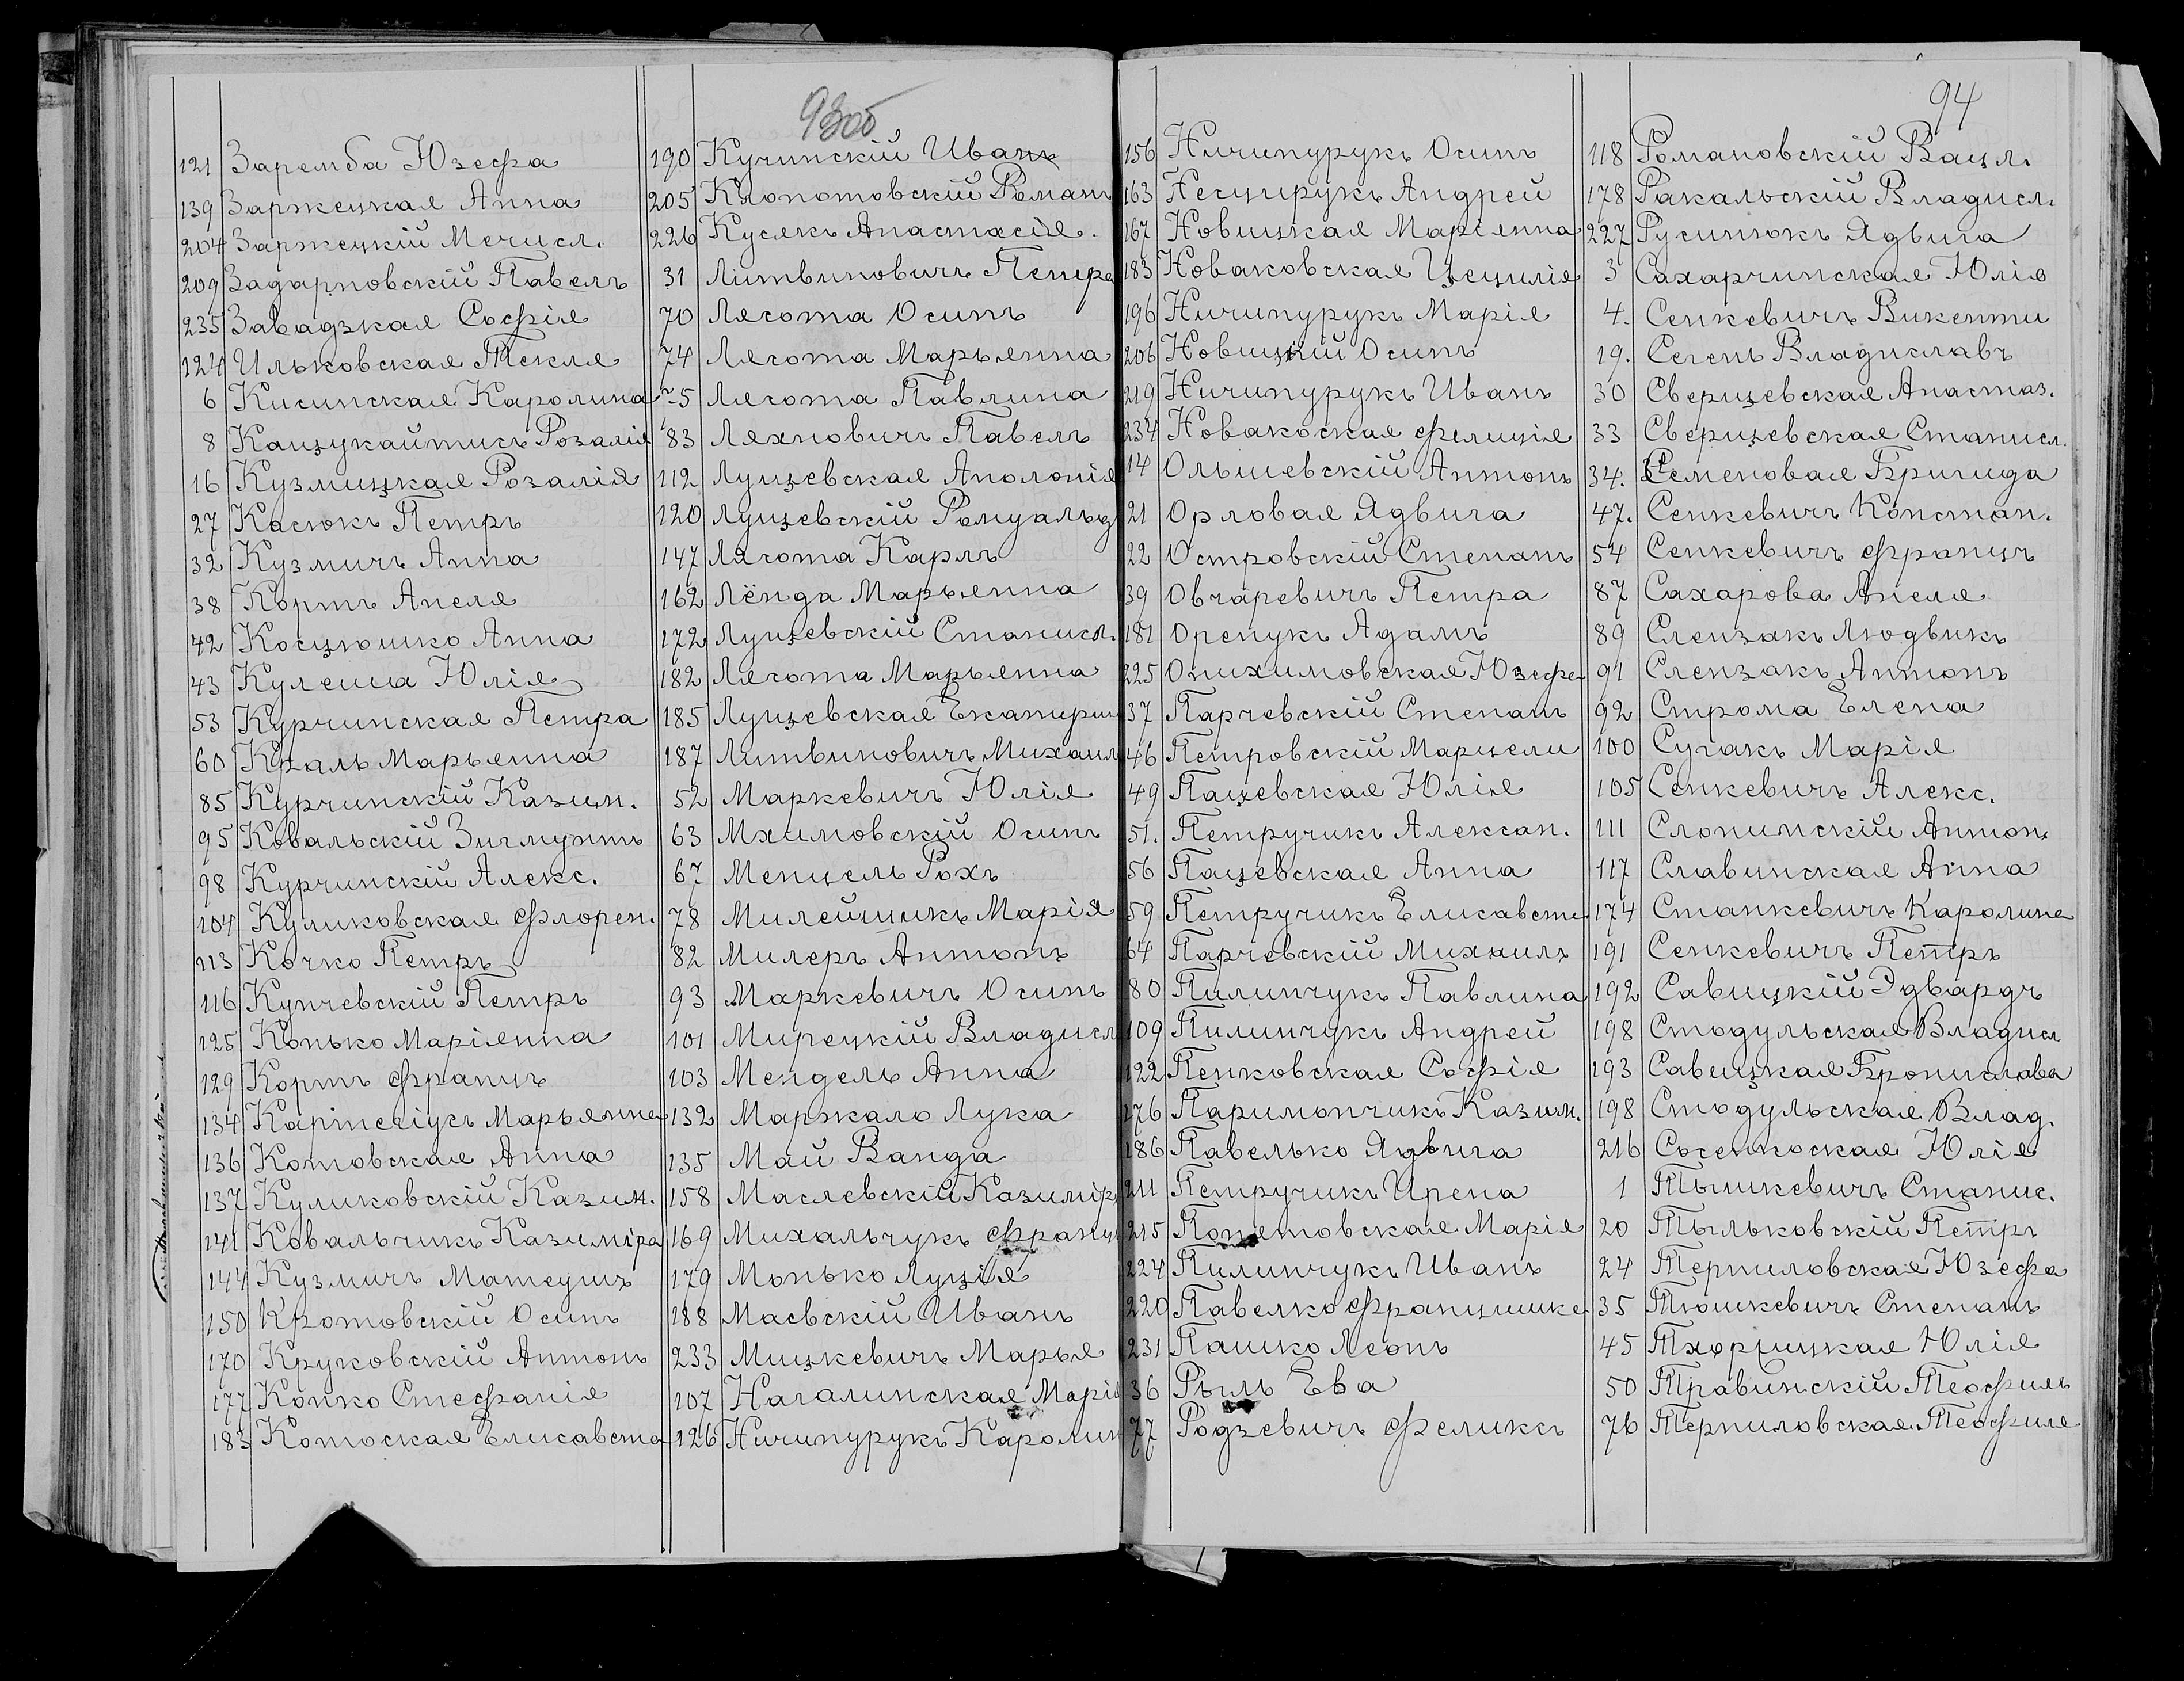 93об
121 Заремба Юзефа
139 Заржецкая Анна
204 Заржецкій Мечисл.
209 Задарновскій Павелъ
235 Завадзкая Софія
124 Ильковская Текля
6 Кисинская Каролина
8 Канцукайтисъ Розалія
16 Кузмицкая Розалія
27 Касюкъ Петръ
32 Кузмичъ Анна
38 Кортъ Анеля
42 Косцюшко Анна
43 Кулеша Юлія
53 Курчинская Петра
60 Краль Марьянна
85 Курчинскій Казим.
95 Ковальскій Зигмунтъ
98 Курчинскій Алекс.
104 Куликовская Флорен.
113 Кочко Петръ
116 Купчевскій Петръ
125 Конько Маріянна
129 Кортъ Францъ
134 Марьянна
136 Котовская Анна
137 Куликовскій Казим.
141 Ковальчикъ Казиміра
144 Кузмичъ Матеушъ
150 Кротовскій Осипъ
170 Круковскій Антонъ
177 Конко Стефанія
183 Котоская Елисавета
190 Кучинскій Иванъ
205 Клопотовскій Романъ
226 Кусякъ Анастасія.
31 Литвиновичъ Петра
70 Лясота Осипъ
74 Лясота Марьянна
75 Лясота Павлина
83 Ляхновичъ Павелъ
112 Лущевская Аполонія
120 Лущевскій Ромуальд
147 Лясота Карлъ
162 Лёнда Марьянна
172 Лущевскій Станисл.
182 Лясота Марьянна
185 Лущевская Екатерин
187 Литвиновичъ Михаил
52 Маркевичъ Юлія
63 Мхимовскій Осипъ
67 Менцель Рохъ
78 Милейшикъ Марія
82 Милеръ Антонъ
93 Маркевичъ Осипъ
101 Мирецкій Владисл
103 Мендель Анна
132 Маржало Лука
135 Май Ванда
158 Маслевскій Казимір
169 Михальчукъ Франц
179 Монько Луція
188 Маевскій Иванъ
233 Мицкевичъ Марья
107 Нагалинская Марія
126 Ничипурукъ Каролин
94
156 Ничипурукъ Осипъ
163 Несцирукъ Андрей
167 Новицкая Маріянна
183 Новаковская Цецилія
196 Ничипурукъ Марія
206 Новицкій Осипъ
219 Ничипурукъ Иванъ
234 Новакоская Фелиція
14 Ольшевскій Антонъ
21 Орловая Ядвига
22 Островскій Степанъ
39 Овчаревичъ Петра
181 Орепукъ Адамъ
225 Онихимовская Юзефа
37 Парчевскій Степанъ
46 Петровскій Марцели
49 Пацевская Юлія
51. Петручикъ Алексан.
56 Пацевская Анна
59 Петручикъ Елисавета
64 Парчевскій Михаилъ
80 Пилипчукъ Павлина
109 Пилипчукъ Андрей
122 Пенковская Софія
176 Паримончикъ Казим.
186 Павелько Ядвига
211 Петручикъ Ирена
215 Марія
224 Пилипчукъ Иванъ
220 Павелко Францишка
231 Пашко Леонъ
36 Рыль Ева
77 Родзевичъ Феликсъ
118 Романовскій Вацл.
178 Ракальскій Владисл.
227 Русинюкъ Ядвига
3 Сахарчинская Юлія
4. Сенкевичъ Викенти
19. Сегень Владиславъ
30 Сверщевская Анастаз.
33 Сверщевская Станисл.
34. Семеновая Бригида
47. Сенкевичъ Констан.
54 Сенкевичъ Францъ
87 Сахарова Анеля
89 Слензакъ Людвикъ
91 Слензакъ Антонъ
92 Строма Елена
100 Сугакъ Марія
105 Сенкевичъ Алекс.
111 Слонимскій Антонъ
117 Славинская Анна
174 Станкевичъ Каролина
191 Сенкевичъ Петръ
192 Савицкій Эдвардъ
198 Стодульская Владисл
193 Савицкая Брониславa
198 Стодульская Влад.
216 Сосенкоская Юлія
1 Тышкевичъ Станис.
20 Тыльковскій Петръ
24 Терпиловская Юзефа
35 Тюшкевичъ Степанъ
45 Тхоржицкая Юлія
50 Травинскій Теофиль
76 Терпиловская Теофиля